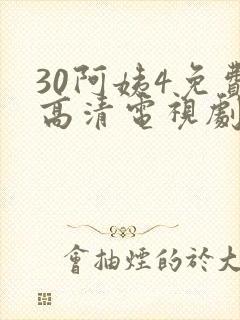 30阿姨4免費
高清電視劇
會抽煙的於大